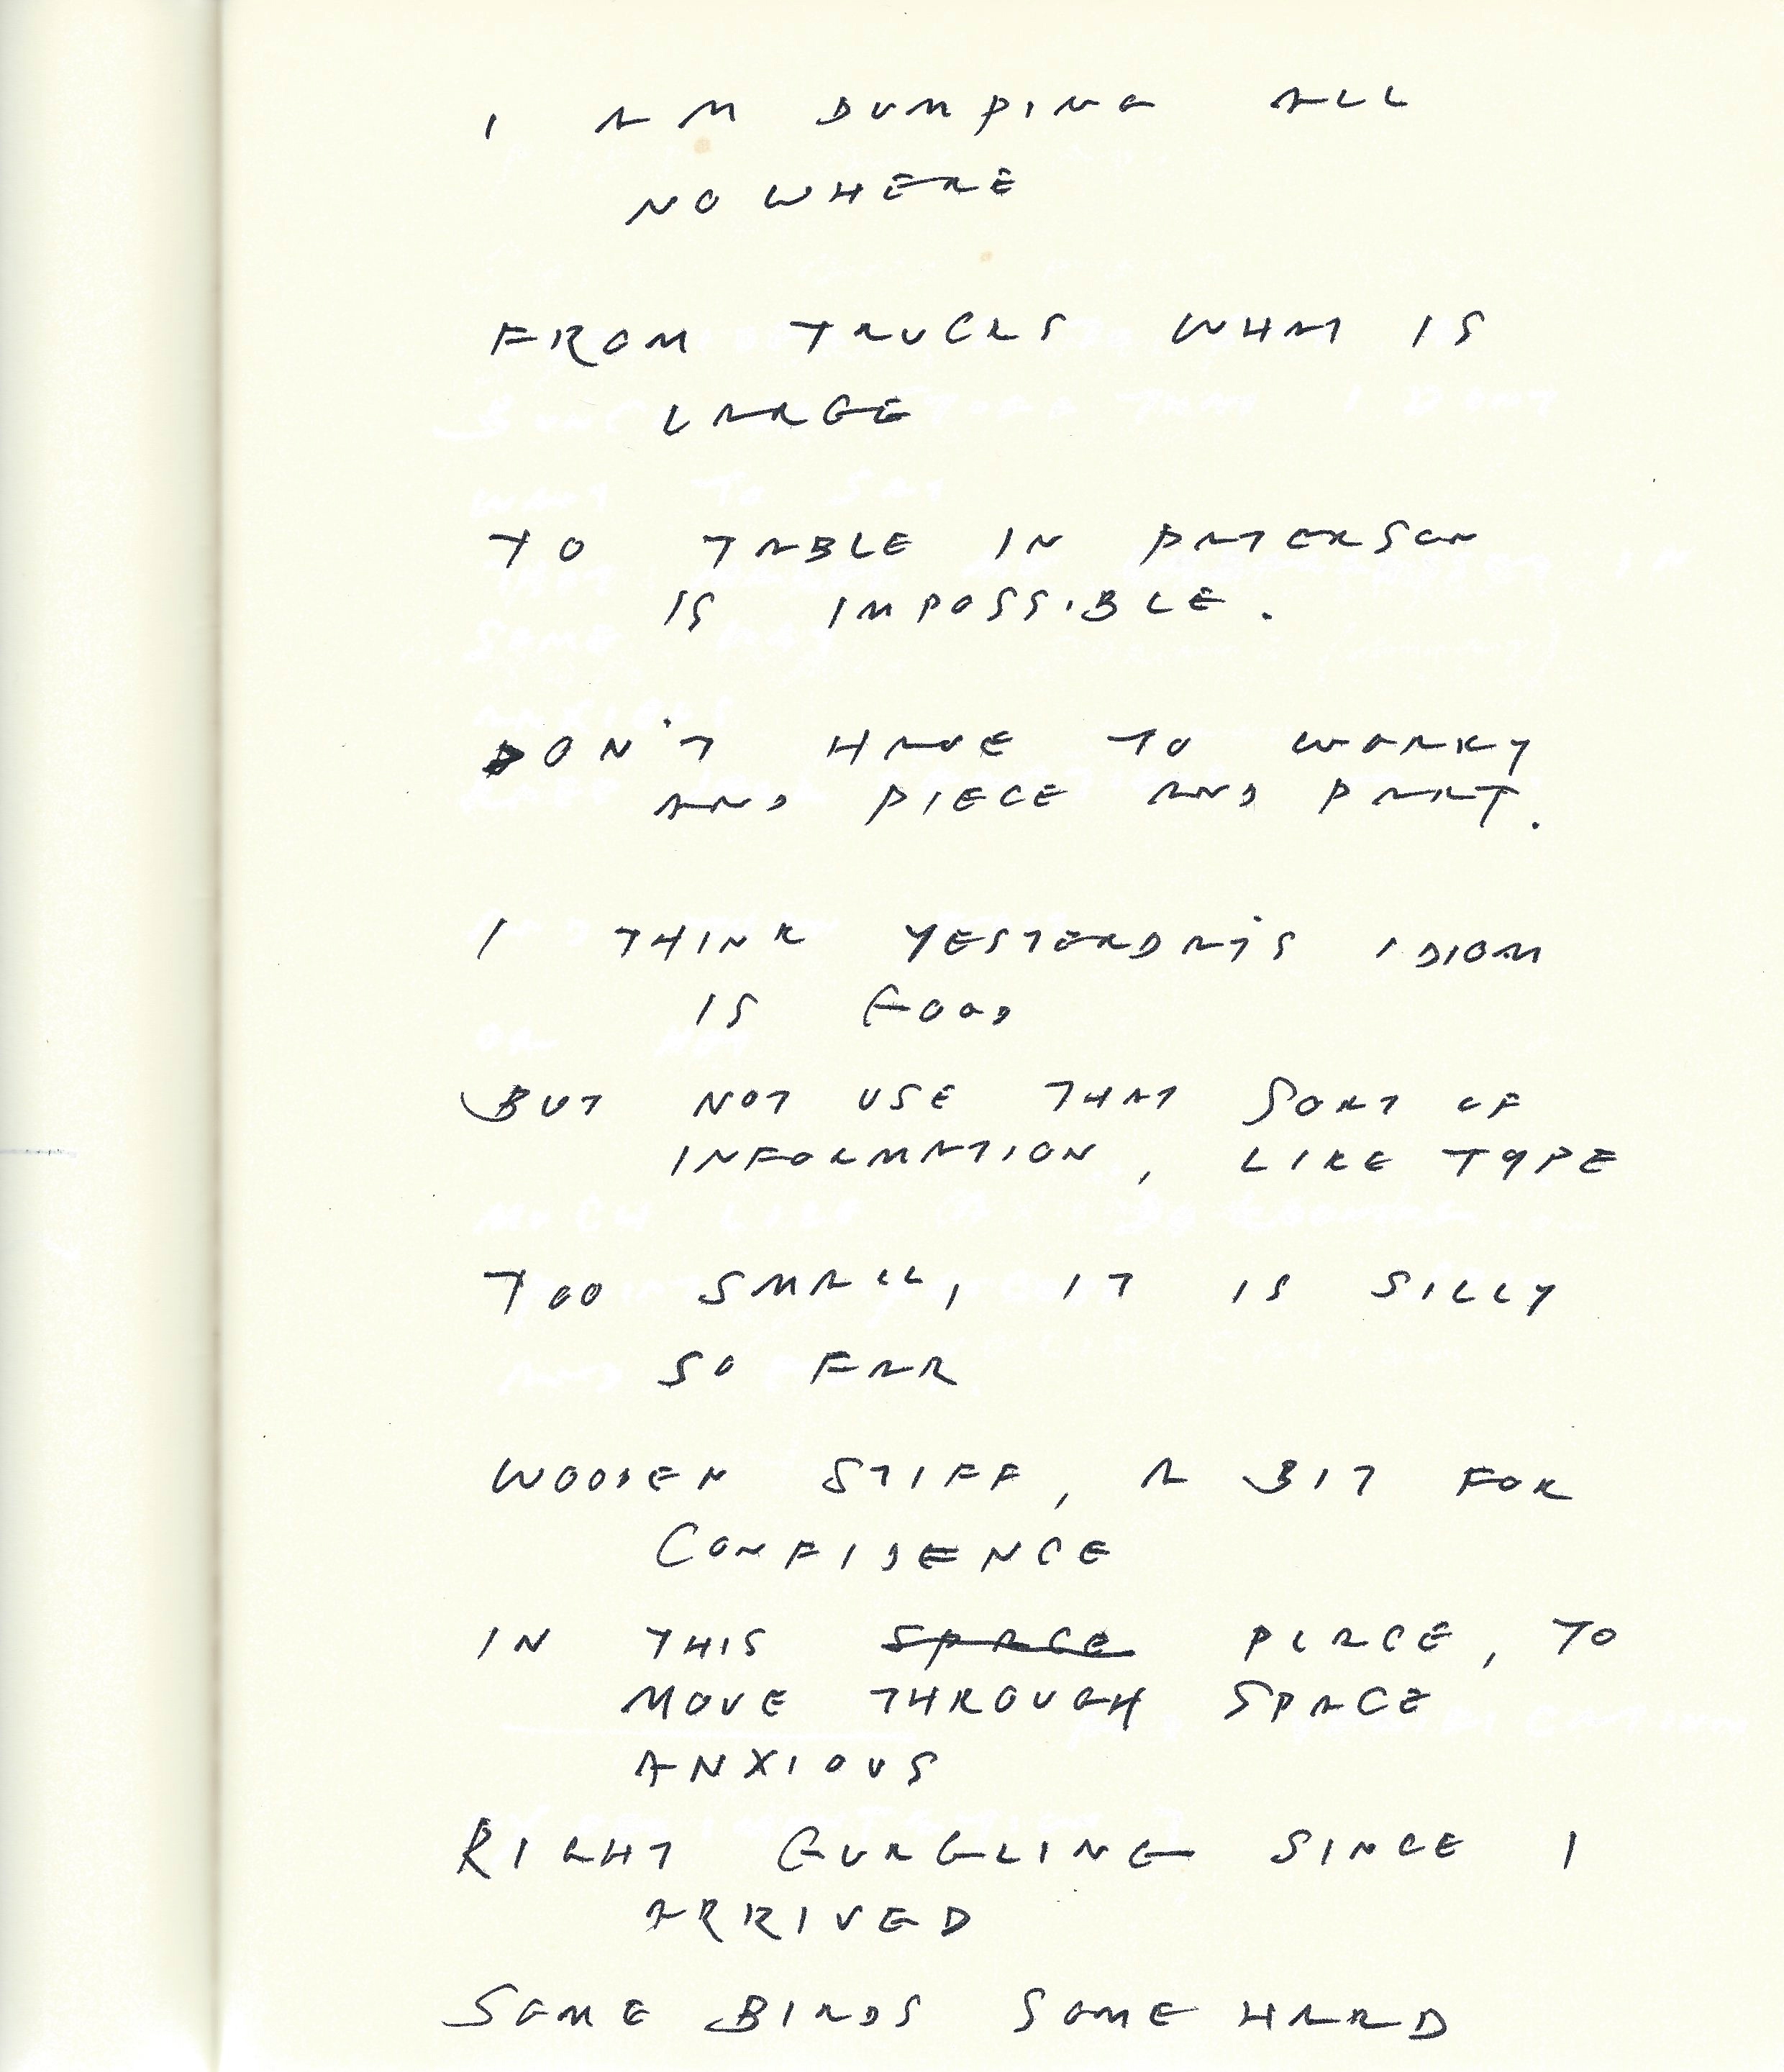 I AM DUMPING ALL
NOWHERE
FROM TRUCKS WHAT IS
LARGE
TO TABLE IN PATERSON
IS IMPOSSIBLE.
DON'T HAVE TO WORRY
AND PIECE AND PART.
I THINK YESTERDAY'S IDIOM
IS GOOD
BUT NOT USE THAT SORT OF
INFORMATION, LIKE TYPE
TOO SMALL, IT IS SILLY
SO FAR
WOODEN STIFF, A BIT FOR
CONFIDENCE
IN THIS SPACE PLACE, TO
MOVE THROUGH SPACE
ANXIOUS
RIGHT GURGLING SINCE I
ARRIVED
SOME BIRDS SOME HARD